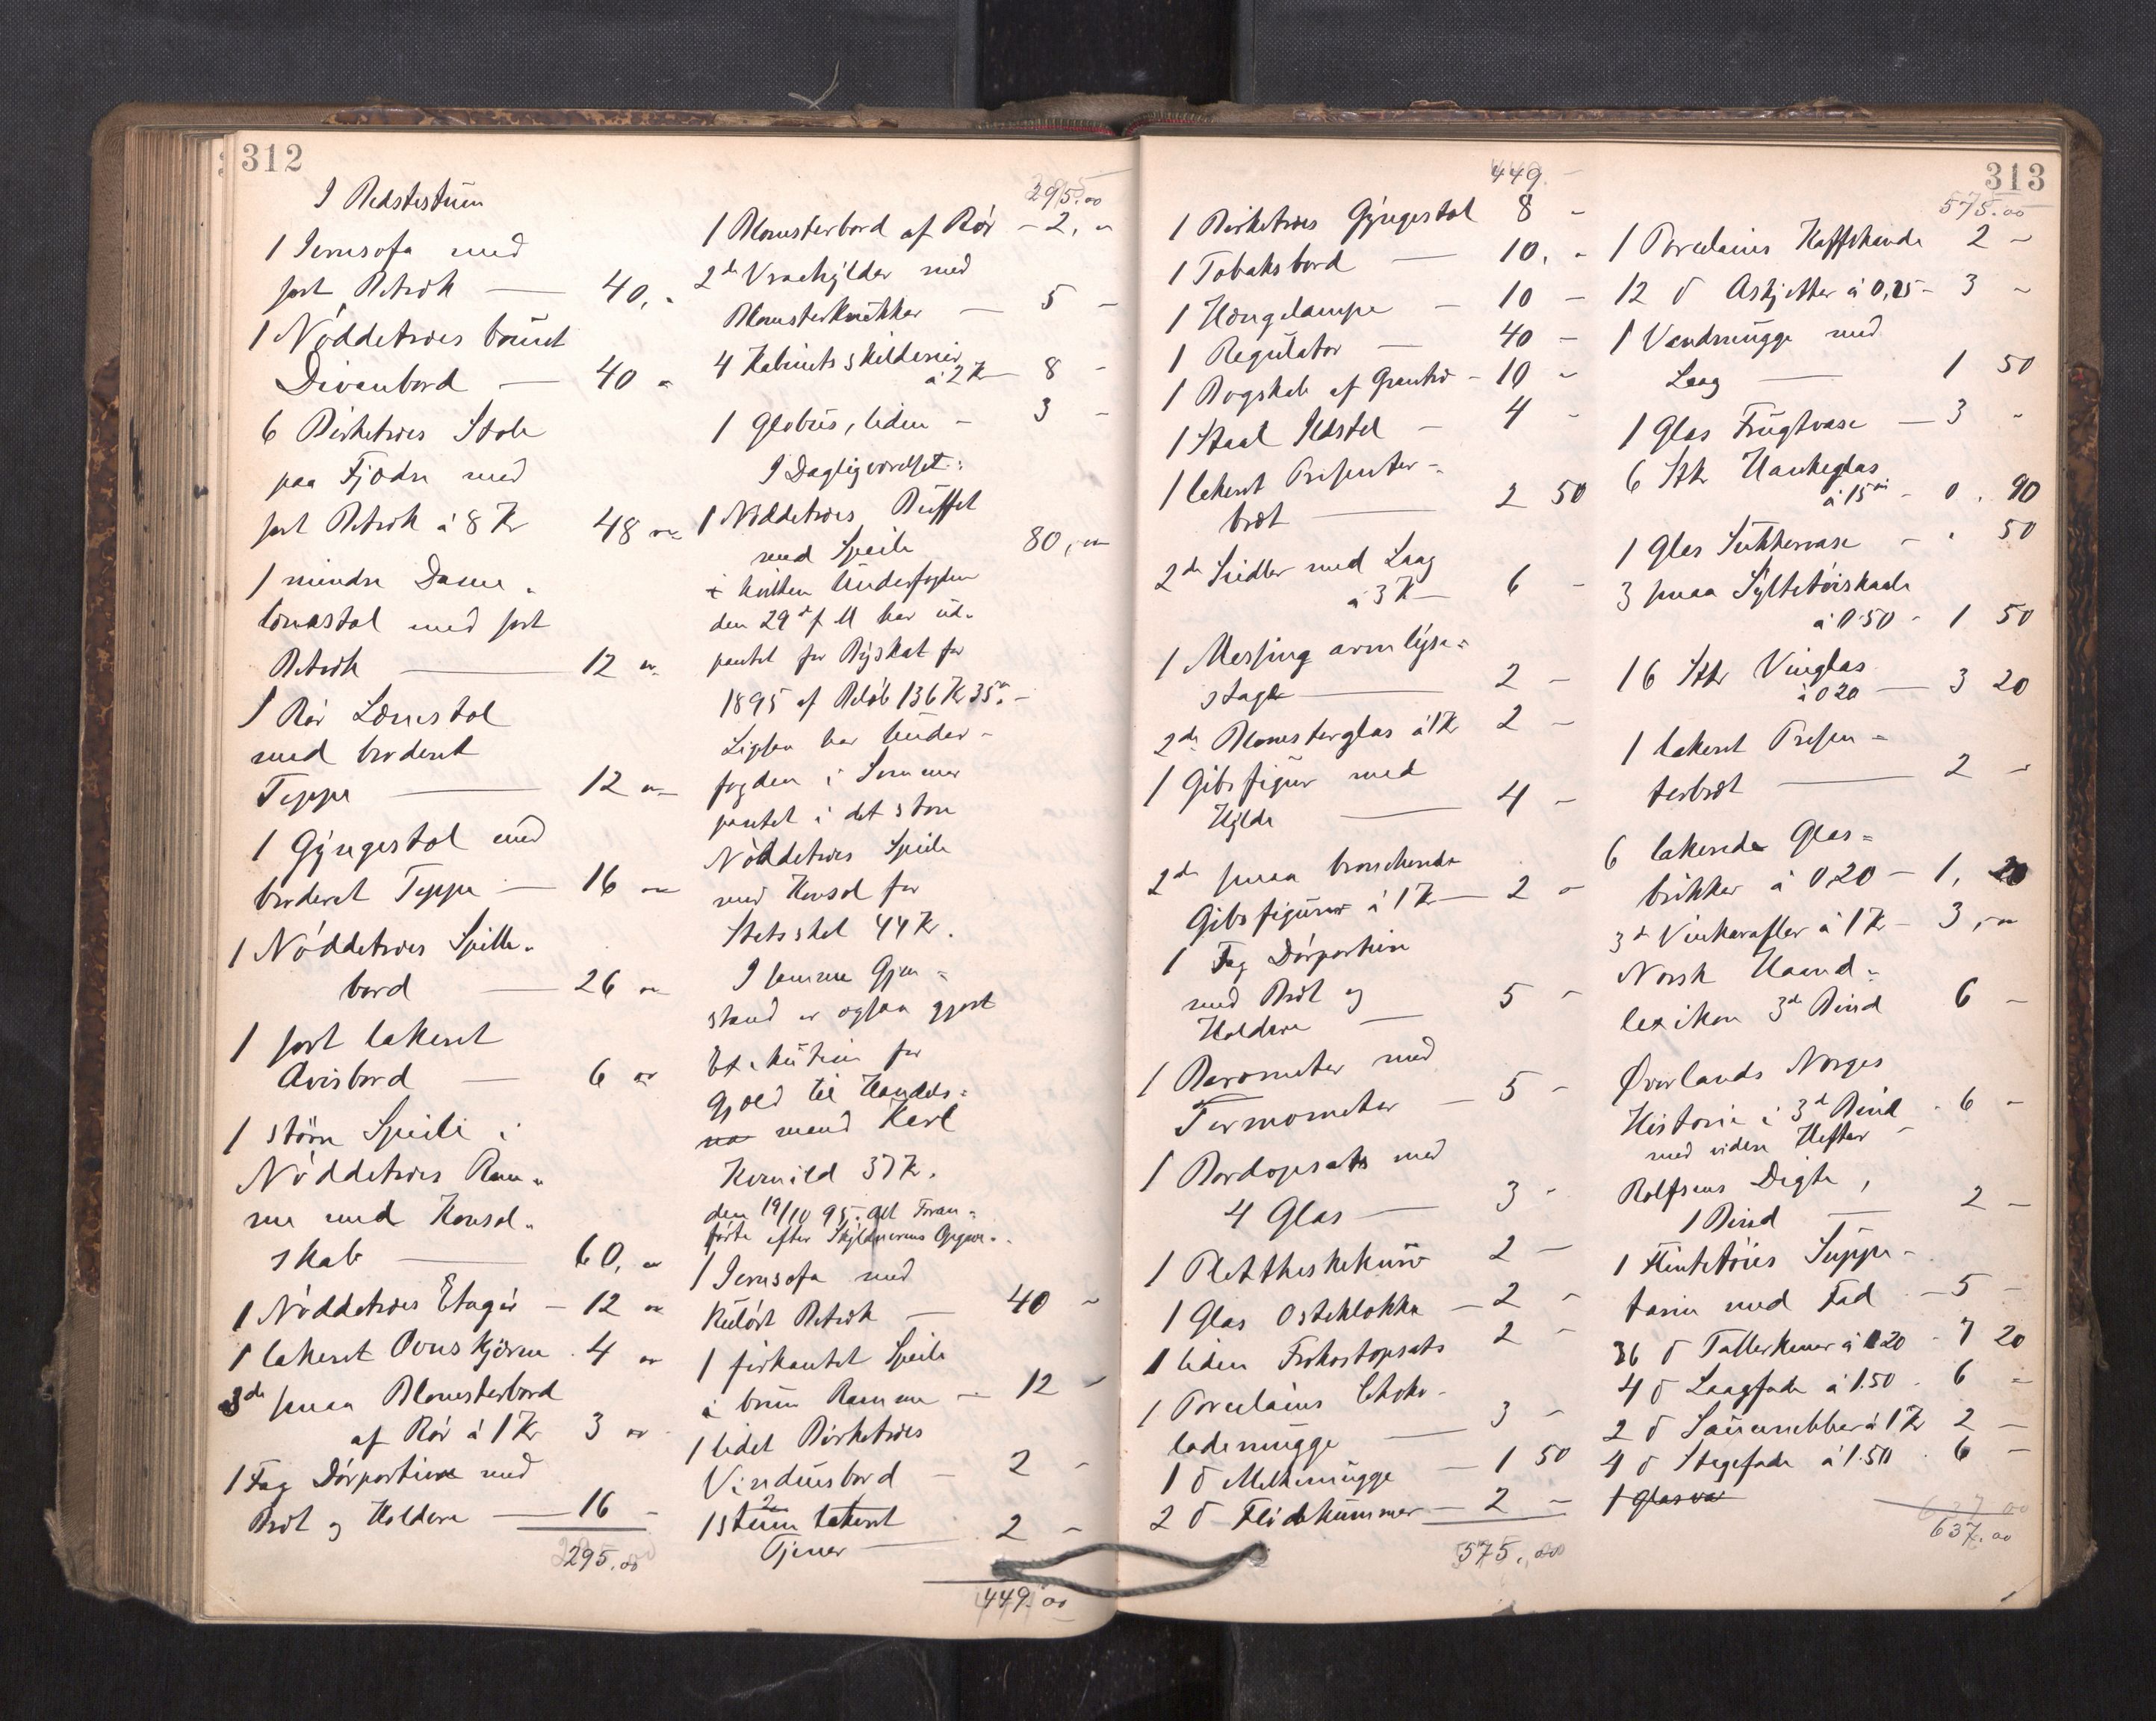 312
I Bedstestuen
1 Jernsofa med
sort Betræk — 40,"
1 Nøddetræes brunet
Divanbord — 40 "
6 Birketræes Stole
paa Fjædre med
sort Betræk á 8 Kr 48 "
1 mindre Dame-
lænestol med sort
Betræk — 12 "
1 Rør Lænestol
med broderet
Teppe — 12 "
1 Gyngestol med
broderet Teppe — 16 "
1 Nøddetræes Spille-
bord — 26 "
1 sort lakeret
Avisbord — 6 "
1 større Speile i
Nøddetræes Ram-
me med Konsol-
skab — 60, "
1 Nøddetræes Etagér — 12 "
1 lakeret Ovnskjerm . 4 "
3de smaa Blomsterbord
af Rør á 1 Kr 3 "
1 Fag Dørportiere med
Bræt og Holdere — 16 -
295.00
295.00
1 Blomsterbord af Rør — 2, "
2de Vraahylder med
Blomsterkrukker — 5 -
4 Kabinets skilderier
á 2 Kr — 8 -
1 Globus, liden - 3 -
I Dagligværelset:
1 Nøddetræes Buffet
med Speile 80, "
i hvilken Underfogden
den 29de f M har ud-
pantet for Byskat for
1895 af Beløb 136 Kr 35 ø. -
Ligesaa har Under-
fogden i Sommer
pantet i det store
Nøddetræes Speile
med Konsol for
Statsskat 44 Kr.
I samme Gjen-
stand er ogsaa gjort
Exekution for
Gjæld til Handels-
na mand Karl
Kornild 37 Kr.
den 19/10 95. Alt Foran-
førte efter Skyldnerens Opgave.
1 Jernsofa med
kulørt Betræk — 40 -
1 firkantet Speile
i brun Ramme — 12 -
1 lidet Birketræes
Vinduesbord - 2 -
1 stum lakeret
Tjener — 2 -
449.00
449. -
1 Birketræes Gyngestol 8 -
1 Tobaksbord — 10, -
1 Hængelampe - 10 -
1 Regulator — 40 -
1 Bogskab af Grantræ - 10 -
1 Staal Ildstel - 4 -
1 lakeret Presenter-
bræt — 2 50
2de Seidler med Laag
á 3 Kr — 6 -
1 Messing armlyse-
stage — 2 -
2de Blomsterglas á 1 Kr 2 -
1 Gibsfigur med
Hylde — 4 -
2de smaa broncherede
Gibsfigurer á 1 Kr — 2 -
1 Fag Dørportiere
med Bræt og
Holdere — 5 -
1 Barometer med
Termometer — 5 -
1 Bordopsats med
4 Glas — 3 -
1 Pletthekekurv 2 -
1 Glas Osteklokke — 2 -
1 liden Frokostopsats 2 -
1 Porcelains Choko-
lademugge — 3 -
1 do Melkemugge — 1 50
2 do Flødekummer — 2 -
575.00
313
575.00
1 Porcelains Kaffekande 2 -
12 do Asjetter á 0,25 - 3 -
1 Vandmugge med
Laag — 1 50
1 Glas Frugtvase — 3 -
6 Stkr Hankeglas
á 15 øre - 0. 90
1 Glas Sukkervase - . 50
3 smaa Syltetøiskaale
á 0.50 - 1 50
16 Stkr Vinglas
á 0 20 — 3 20
1 lakeret Presen-
terbræt — 2 -
6 lakerede Glas-
brikker á 0,20 - 1, 20
3de Vinkarafler á 1 Kr - 3, "
Norsk Haand-
lexikon 3de Bind 6 -
Øverlands Norges
Historie i 3de Bind . 6 -
med videre Hefter
Rolfsens Digte,
1 Bind — 2 -
1 Flintetøies Suppe-
terin med Fad - 5 -
36 do Tallerkener á 0.20 - 7 20
4 do Laagfade á 1.50 . 6 -
2 do Sausenebber á 1 Kr 2 -
4 do Stegefade á 1.50 . 6 -
1 Glasva
637.00